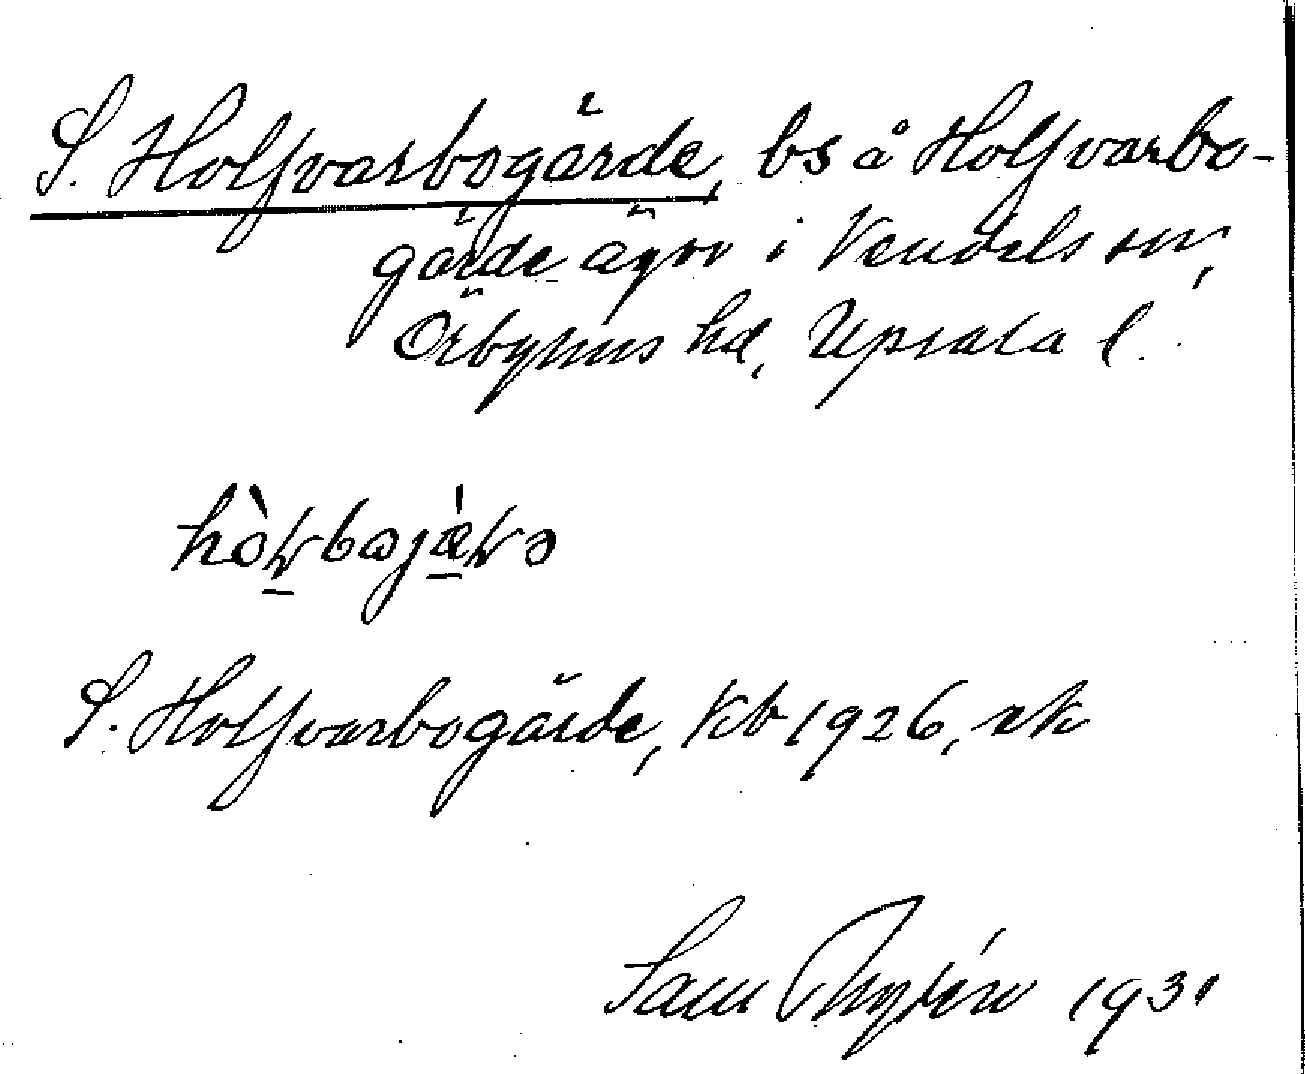 S. Holfvarbogärde, bs å Holfvarbo-
gärde ägor i Vendels sn,
Örbyhus hd, Upsala l.
S. Holfvarbogärde, Kb 1926, rk
Sam 1931